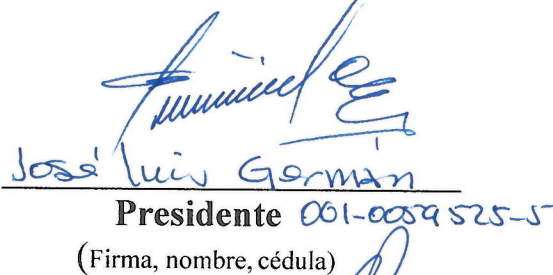 José Luis Germán
Presidente 001-0059525-5
(Firma, nombre, cédula)